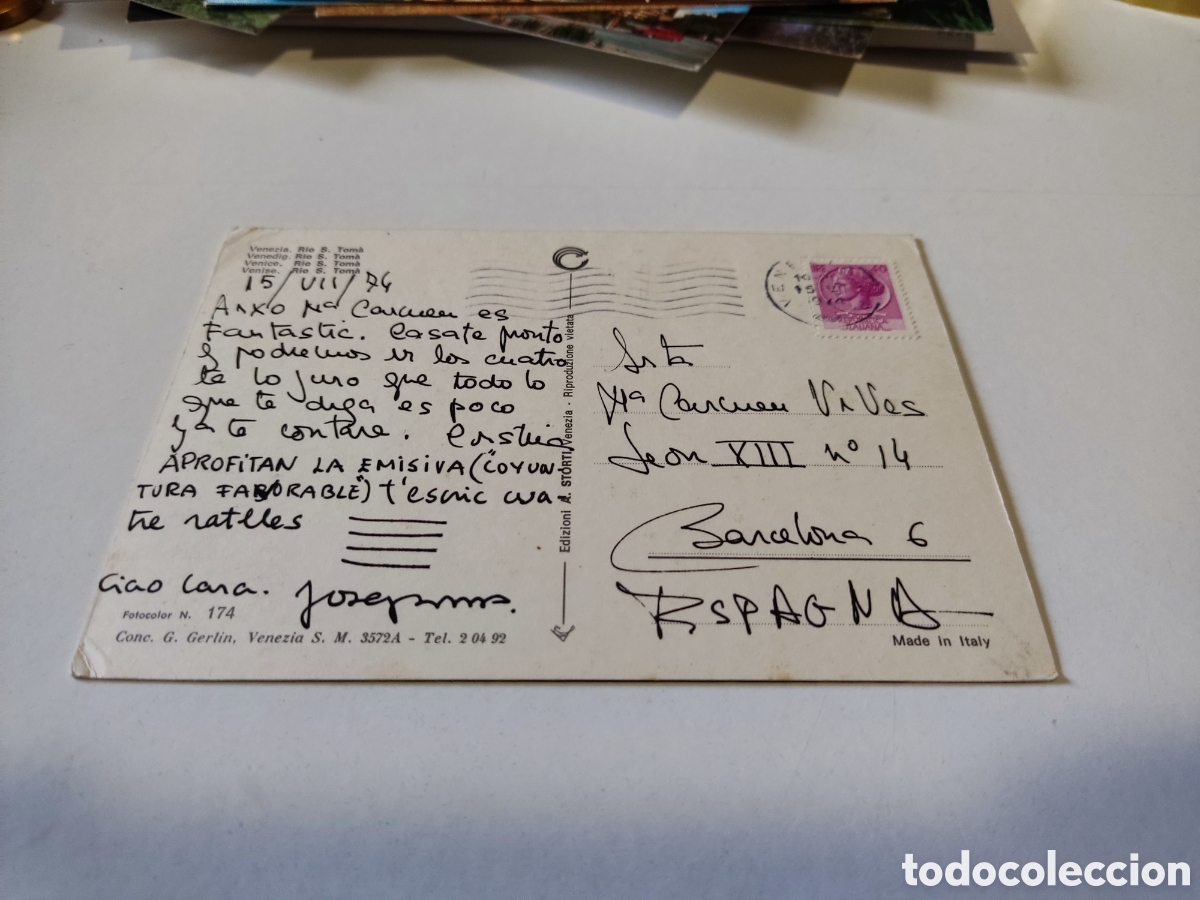 Venezia. Rio S. Tomà
Venedig. Rio S. Tomà
Venice. Rio S. Tomà
Venise. Rio S. Tomà
15/VII/74
Axxo Mª Carmen es
Fantastic. Casate pronto
y podremos ir los cuatro
te lo juro que todo lo
que te diga es poco
ya te contare.
APROFITAN LA EMISIVA ("COYUN-
TURA FAVORABLE") t'escric cua-
tre ratlles
Ciao Cara. Josep
Fotocolor N. 174
Conc. G. Gerlin, Venezia S. M. 3572A - Tel. 2 04 92
Edizioni A. STORTI, Venezia - Riproduzione vietata
Srta
Mª Carmen ViVes
Leon XIII nº 14
Barcelona 6
ESPAGNA
Made in Italy
todocoleccion